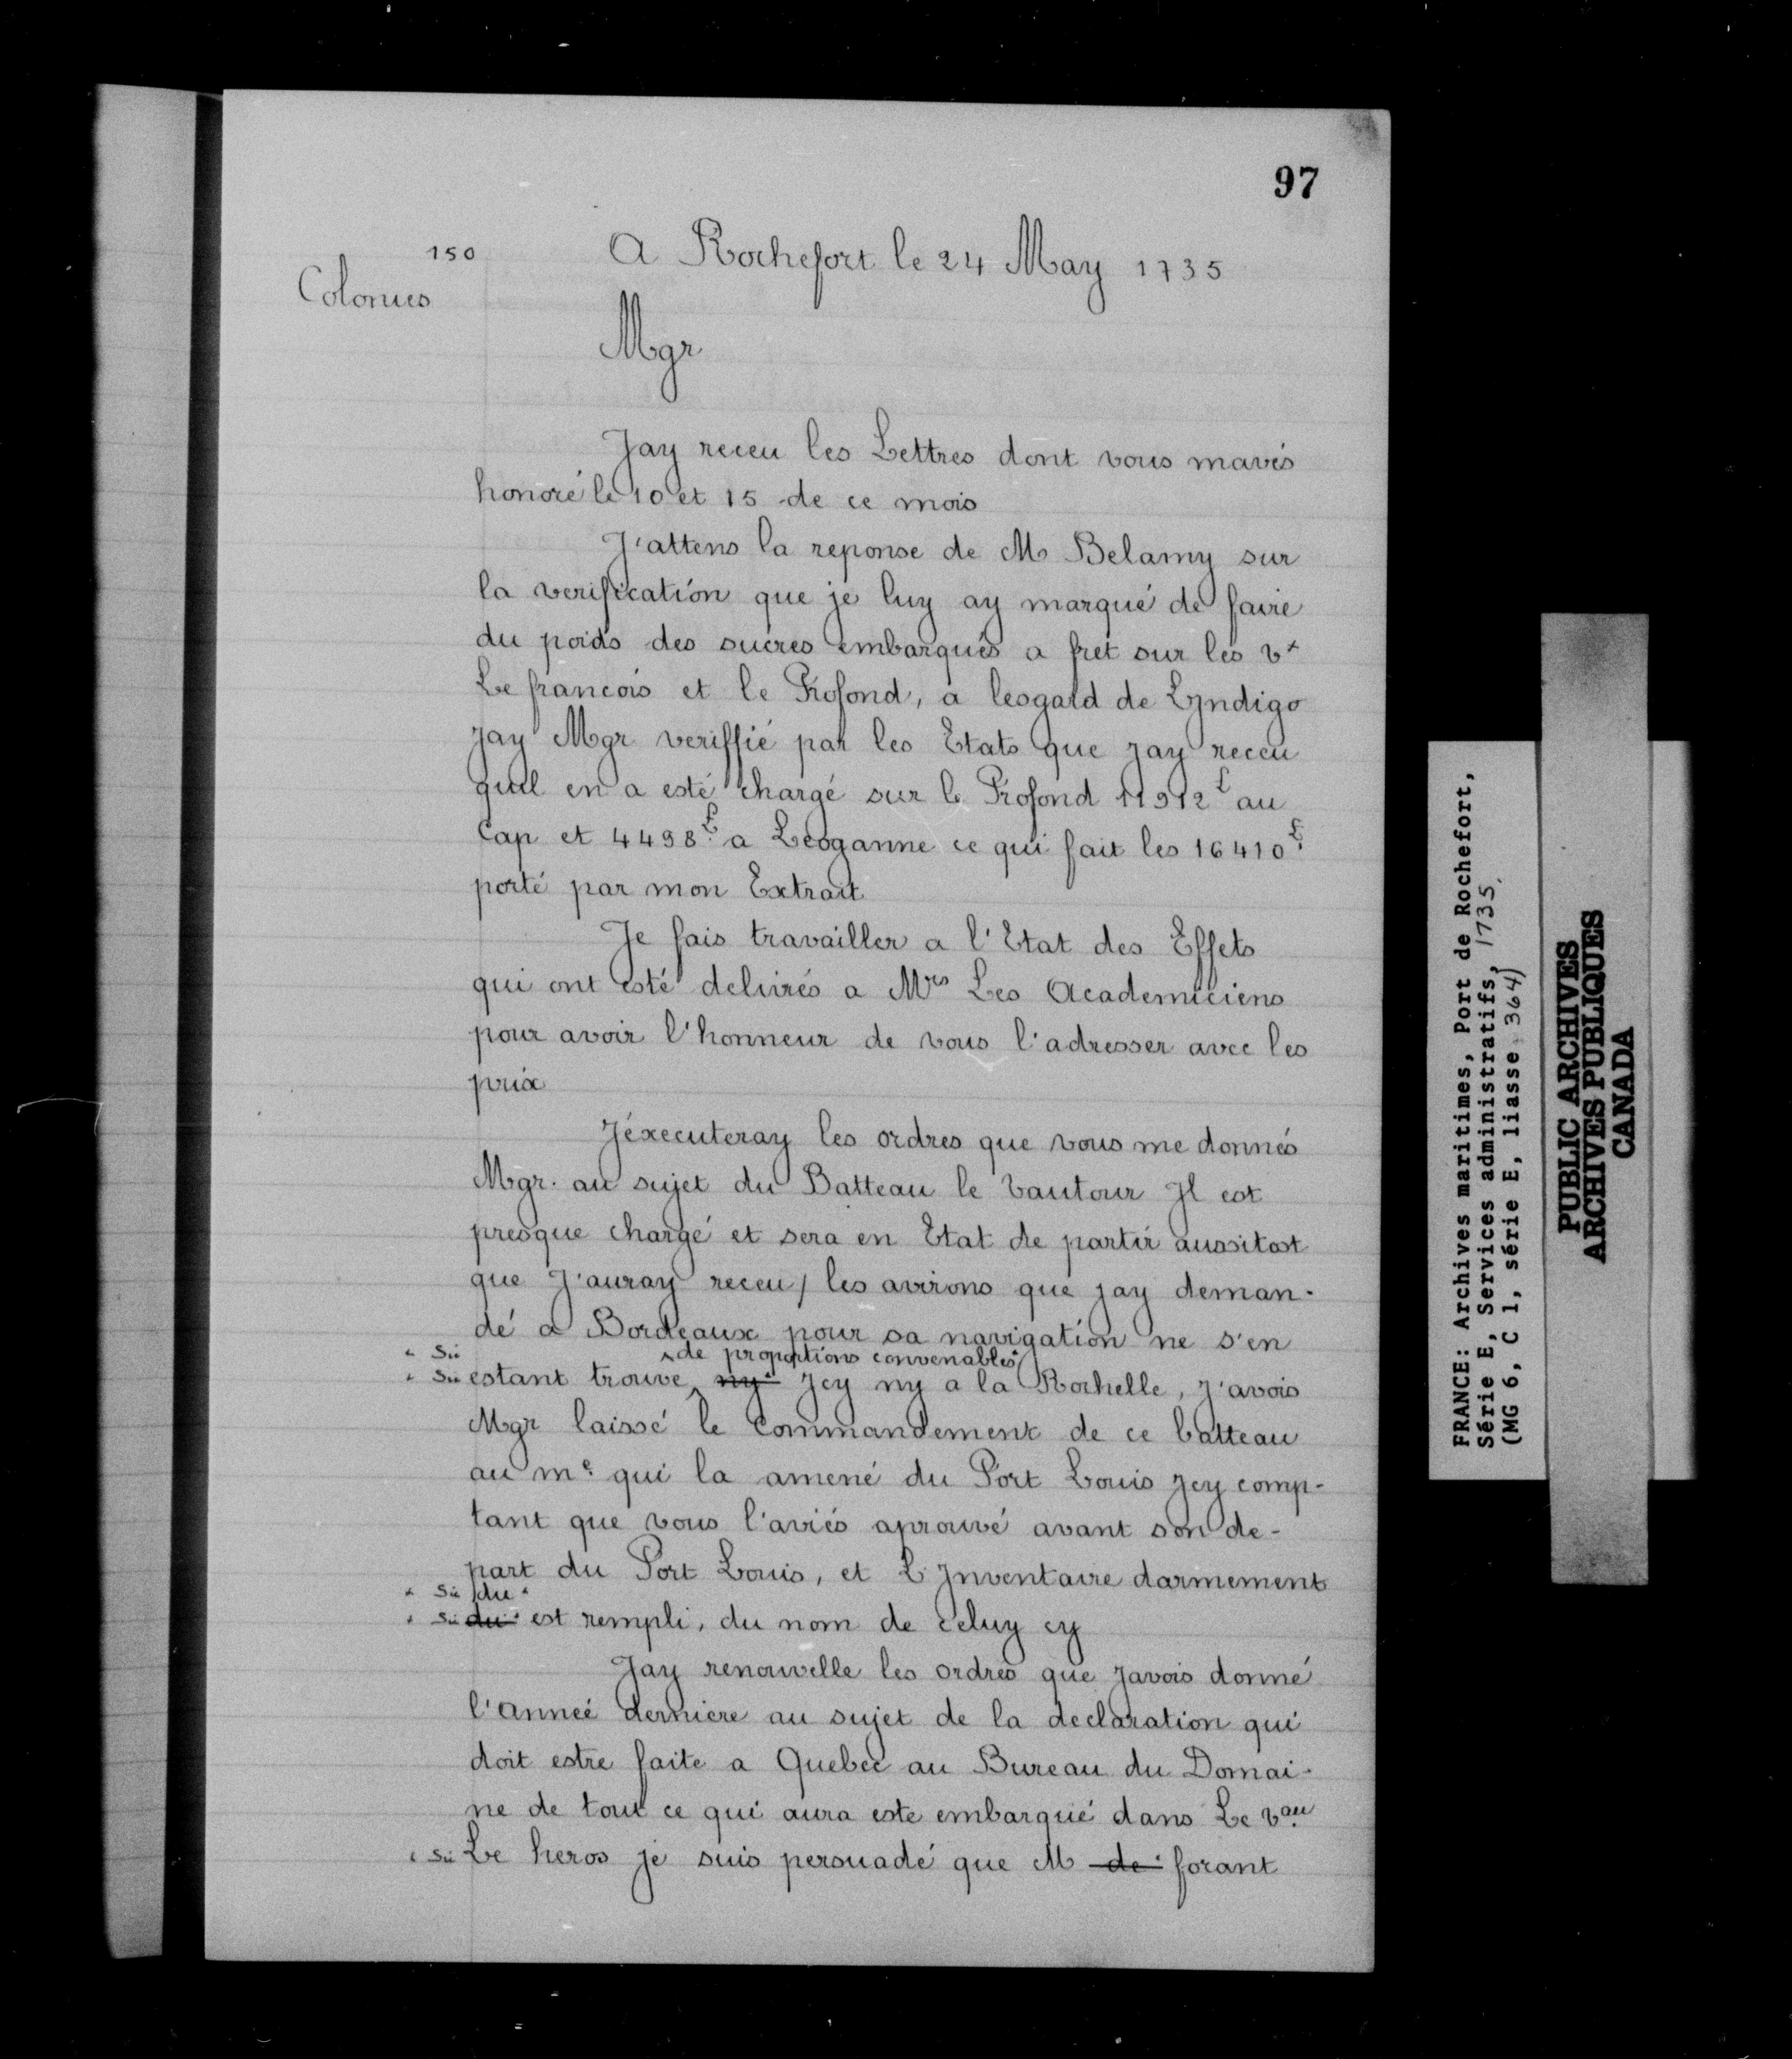 97
150
A Rochefort le 24 May 1735
Colonies
Mgr
Jay receu les Lettres dont vous mavés
honoré le 10 et 15 de ce mois
J'attens la reponse de M Belamy sur
la verification que je luy ay marqué de faire
du poids des sucres embarqués a fret sur les vx
Le francois et le Profond, a lesgard de Lyndigo
jay Mgr veriffié par les Etats que jay receu
quil en a esté chargé sur le Profond 11912 £ au
Cap et 4498 £ a Leoganne ce qui fait les 16410 £
porté par mon Extrait
Je fais travailler a l'Etat des Effets
qui ont esté delivrés a Mrs Les Academiciens
pour avoir l'honneur de vous l'adresser avec les
prix
Jéxecuteray les ordres que vous me donnés
Mgr. au sujet du Batteau le Vautour Jl est
presque chargé et sera en Etat de partir aussitost
que J'auray receu / les avirons que jay deman-
dé a Bordeaux pour sa navigation ne s'en
" Sic de proportions convenables "
" Sic estant trouve ny " Jcy ny a la Rochelle, j'avois
Mgr laissé le Commandement de ce batteau
au me qui la amené du Port Louis jcy comp-
tant que vous l'aviés aprouvé avant son de-
part du Port Louis, et L'Jnventaire darmement
" Sic du "
" Sic du " est rempli, du nom de celuy cy
Jay renouvelle les ordres que javois donné
l'anneé derniere au sujet de la declaration qui
doit estre faite a Quebec au Bureau du Domai-
ne de tout ce qui aura este embarqué dans Le vau
" Sic Le heros je suis persuadé que M de " forant
FRANCE: Archives maritimes, Port de Rochefort,
Série E, Services administratifs, 1735.
(MG 6, C 1, série E, liasse 364)
PUBLIC ARCHIVES
ARCHIVES PUBLIQUES
CANADA